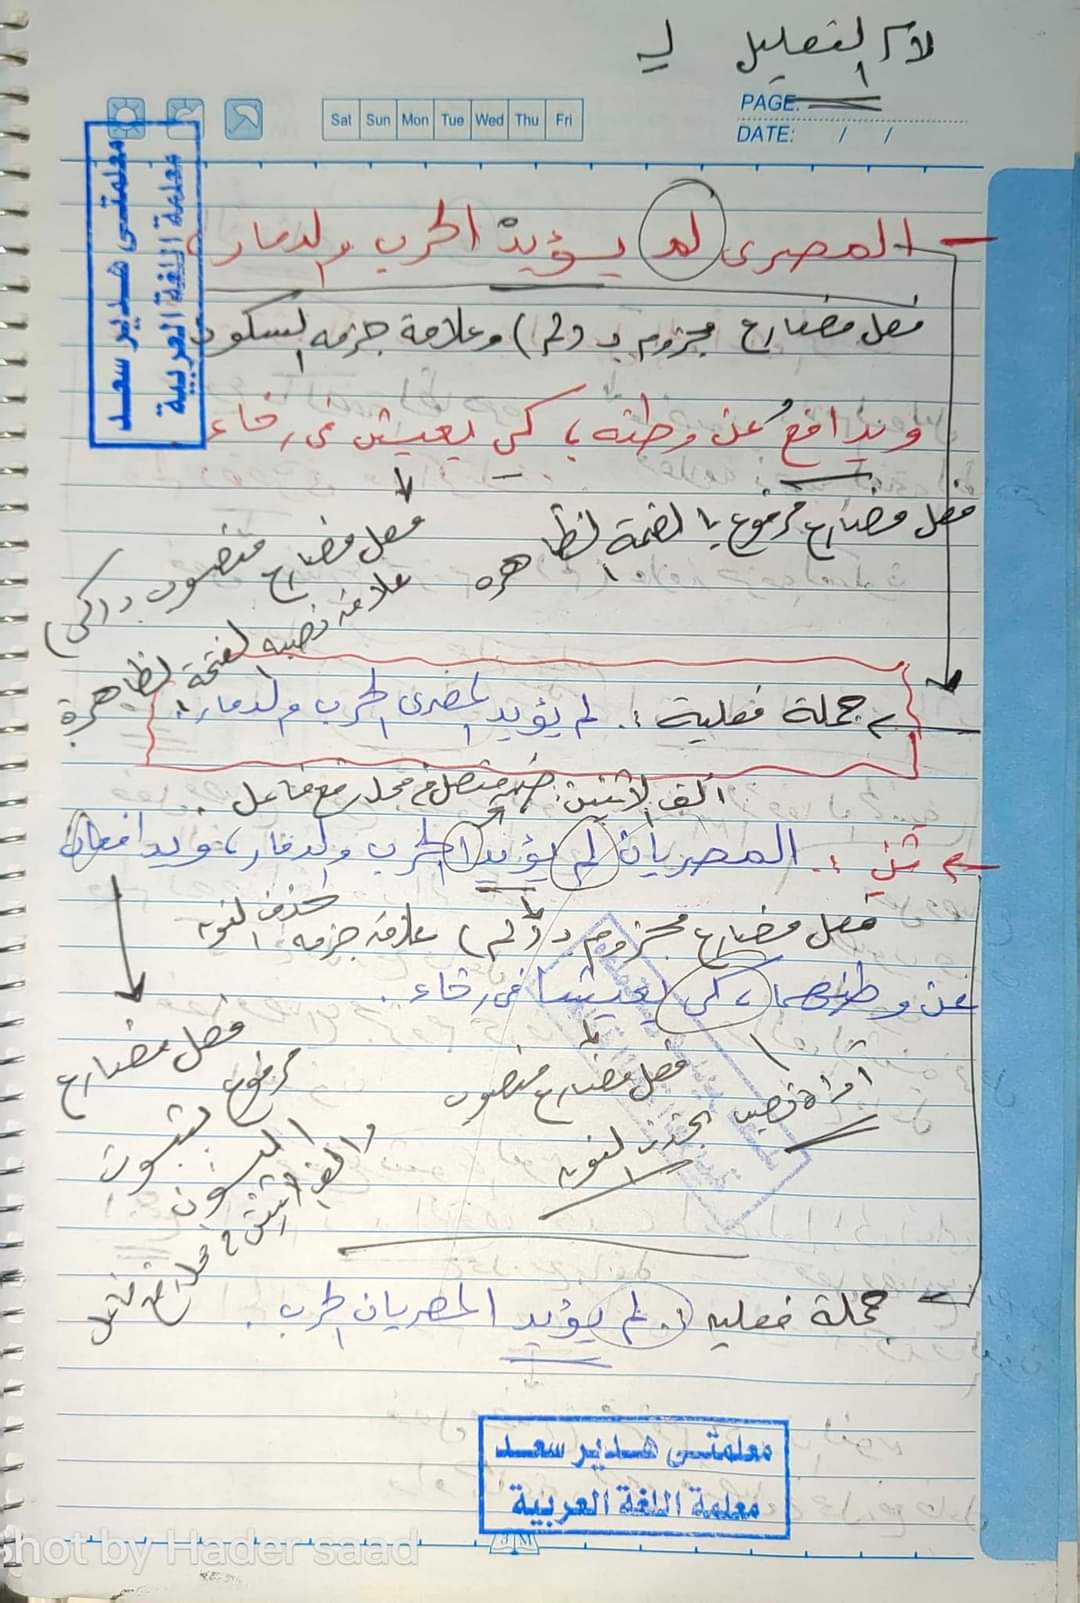 لام التعليل لـِ
PAGE:
DATE: / /
Sat Sun Mon Tue Wed Thu Fri
معلمتى هدير سعد
معلمة اللغة العربية
المصرى لم يؤيدْ الحرب والدمار،
فعل مضارع مجزوم بـ (لم) وعلامة جزمه السكون
ويدافعُ عن وطنه، كى يعيش فى رخاء
فعل مضارع مرفوع بالضمة الظاهرة
فعل مضارع منصوب بـ (كى)
علامة نصبه الفتحة الظاهرة
جملة فعلية : لم يؤيد المصرى الحرب والدمار.
ألف الاثنين: ضمير متصل فى محل رفع فاعل.
ثنِّ : المصريان لم يؤيدا الحرب والدمار، ويدافعان
فعل مضارع مجزوم بـ (لم) علامة جزمه حذف النون
عن وطنهما، كى يعيشا فى رخاء.
فعل مضارع
مرفوع بثبوت
النون
وألف الاثنين فى محل رفع فاعل
فعل مضارع منصوب
بحذف النون
أداة نصب
جملة فعليه : لم يؤيد المصريان الحرب.
معلمتى هدير سعد
معلمة اللغة العربية
Shot by Hader saad